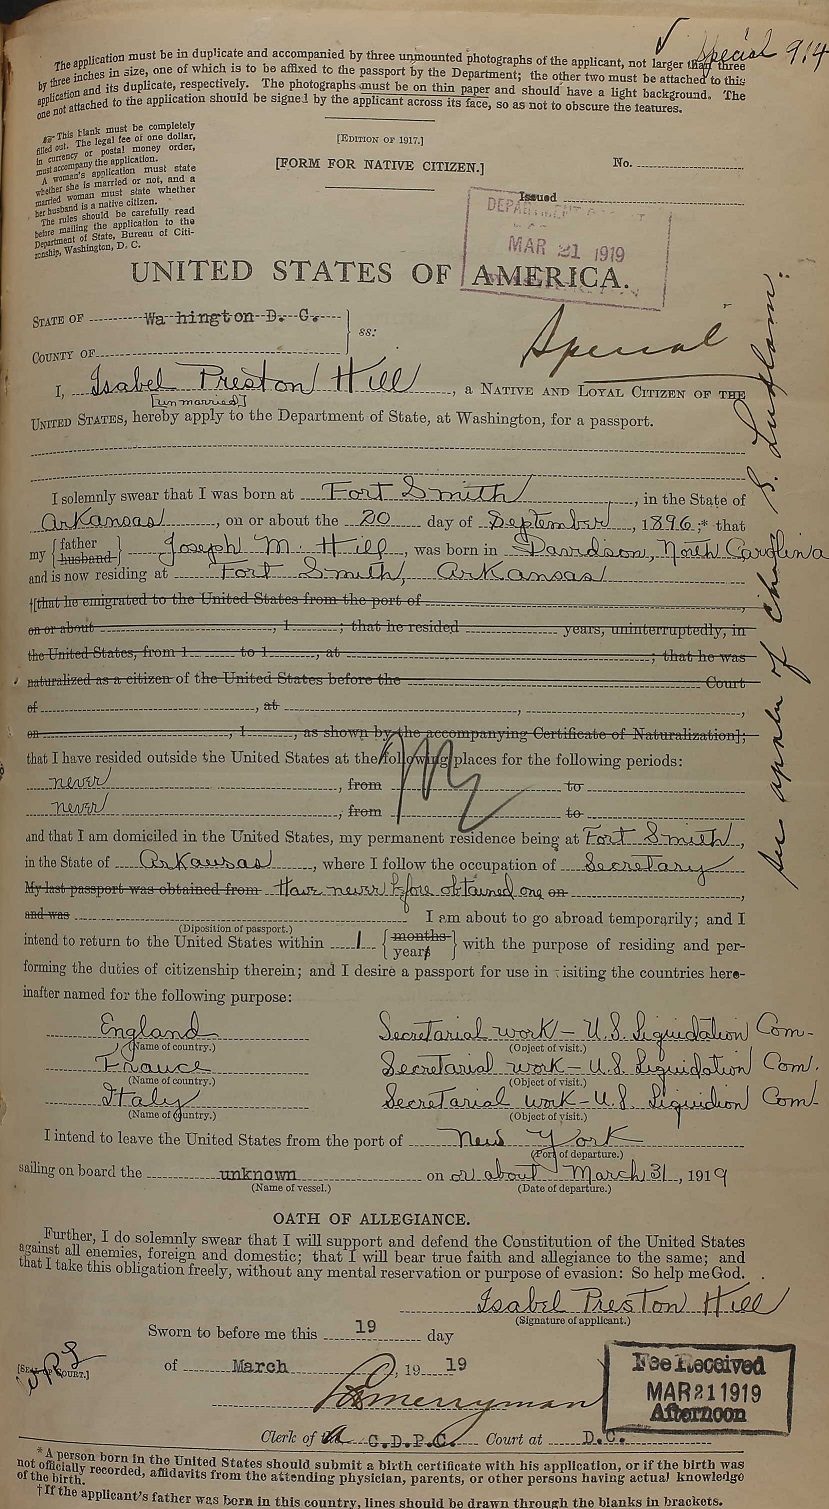 Special 914
The application must be in duplicate and accompanied by three unmounted photographs of the applicant, not larger than three
by three inches in size, one of which is to be affixed to the passport by the Department; the other two must be attached to this
application and its duplicate, respectively. The photographs must be on thin paper and should have a light background. The
one not attached to the application should be signed by the applicant across its face, so as not to obscure the features.
This blank must be completely
filled out. The legal fee of one dollar,
in currency or postal money order,
must accompany the application.
A woman's application must state
whether she is married or not, and a
married woman must state whether
her husband is a native citizen.
The rules should be carefully read
before mailing the application to the
Department of State, Bureau of Citi-
zenship, Washington, D. C.
[EDITION OF 1917.]
[FORM FOR NATIVE CITIZEN.]
No.
Issued
MAR 21 1919
UNITED STATES OF AMERICA.
STATE OF Wa hington D. C.
ss:
COUNTY OF
Special
I, Isabel Preston Hill, a NATIVE AND LOYAL CITIZEN OF THE
[unmarried]
UNITED STATES, hereby apply to the Department of State, at Washington, for a passport.
I solemnly swear that I was born at Fort Smith, in the State of
Arkansas, on or about the 20 day of September, 1896;* that
my {father husband} Joseph M. Hill, was born in Davidson, North Carolina
and is now residing at Fort Smith, Arkansas
†[that he emigrated to the United States from the port of
on or about , 1 ; that he resided years, uninterruptedly, in
the United States, from 1 to 1 , at ; that he was
naturalized as a citizen of the United States before the Court
of , at , ,
on , 1 , as shown by the accompanying Certificate of Naturalization];
that I have resided outside the United States at the following places for the following periods:
never , from to
never , from to
and that I am domiciled in the United States, my permanent residence being at Fort Smith,
in the State of Arkansas, where I follow the occupation of Secretary
My last passport was obtained from Have never before obtained one on ,
and was I am about to go abroad temporarily; and I
(Diposition of passport.)
intend to return to the United States within 1 {months years} with the purpose of residing and per-
forming the duties of citizenship therein; and I desire a passport for use in visiting the countries here-
inafter named for the following purpose:
England Secretarial work - U.S. Liquidation Com-
(Name of country.) (Object of visit.)
France Secretarial work - U.S. Liquidation Com.
(Name of country.) (Object of visit.)
Italy Secretarial work - U.S. Liquidion Com-
(Name of country.) (Object of visit.)
I intend to leave the United States from the port of New York
(Port of departure.)
sailing on board the unknown on or about March 31, 1919
(Name of vessel.) (Date of departure.)
OATH OF ALLEGIANCE.
Further, I do solemnly swear that I will support and defend the Constitution of the United States
against all enemies, foreign and domestic; that I will bear true faith and allegiance to the same; and
that I take this obligation freely, without any mental reservation or purpose of evasion: So help me God.
Isabel Preston Hill
(Signature of applicant.)
Sworn to before me this 19 day
[SEAL OF COURT.]
of March, 19 19
Merryman
Clerk of the C.D.P.C. Court at D.C.
Fee Received
MAR 21 1919
Afternoon
* A person born in the United States should submit a birth certificate with his application, or if the birth was
not officially recorded, affidavits from the attending physician, parents, or other persons having actual knowledge
of the birth.
† If the applicant's father was born in this country, lines should be drawn through the blanks in brackets.
See appln of Chas. S. Ludlam.